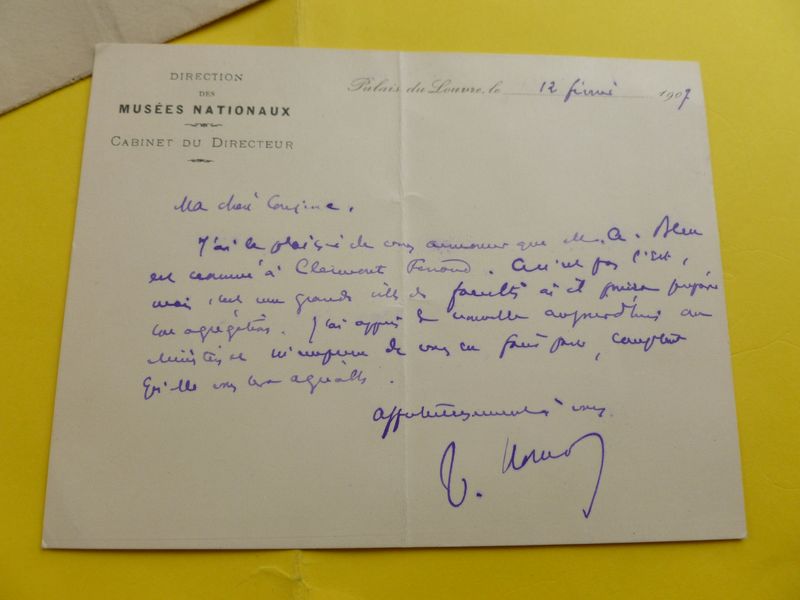 DIRECTION
DES
MUSÉES NATIONAUX
CABINET DU DIRECTEUR
Palais du Louvre, le 12 février 1907
Ma chère Cousine,
J'ai le plaisir de vous annoncer que M. A. Bleu
est nommé à Clermont Ferrand. Ce n'est pas l'Est,
mais c'est une grande ville de facultés où il pourra préparer
son agrégation. J'ai appris la nouvelle aujourd'hui au
Ministère et m'empresse de vous en faire part, comptant
qu'elle vous sera agréable.
Affectueusement à vous.